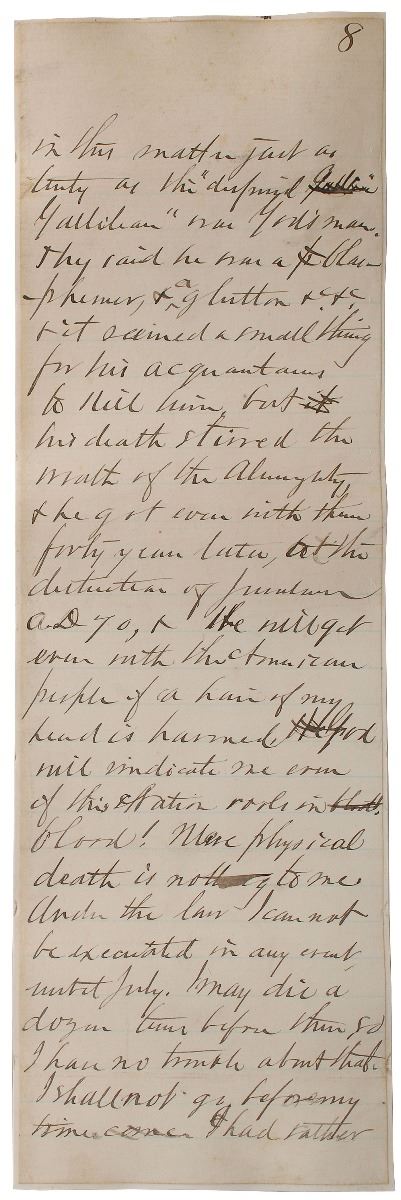 8
in this matter just as
truly as the "despised
Gallilean" was God's man.
They said he was a blas-
-phemer, & a glutton &c &c
& it seemed a small thing
for his acquantanes
to kill him, but it
his death stirred the
wrath of the Almighty,
& he got even with them
forty years later, at the
distruction of Jerusalem
A.D 70, & He will get
even with the American
people if a hair of my
head is harmed. God
will vindicate me even
if this Nation rools in blood
blood! Mere physical
death is nothing to me.
Under the law I can not
be executed in any event,
until July. I may die a
dozen times before then so
I have no trouble about that.
I shall not go before my
time comes I had rather